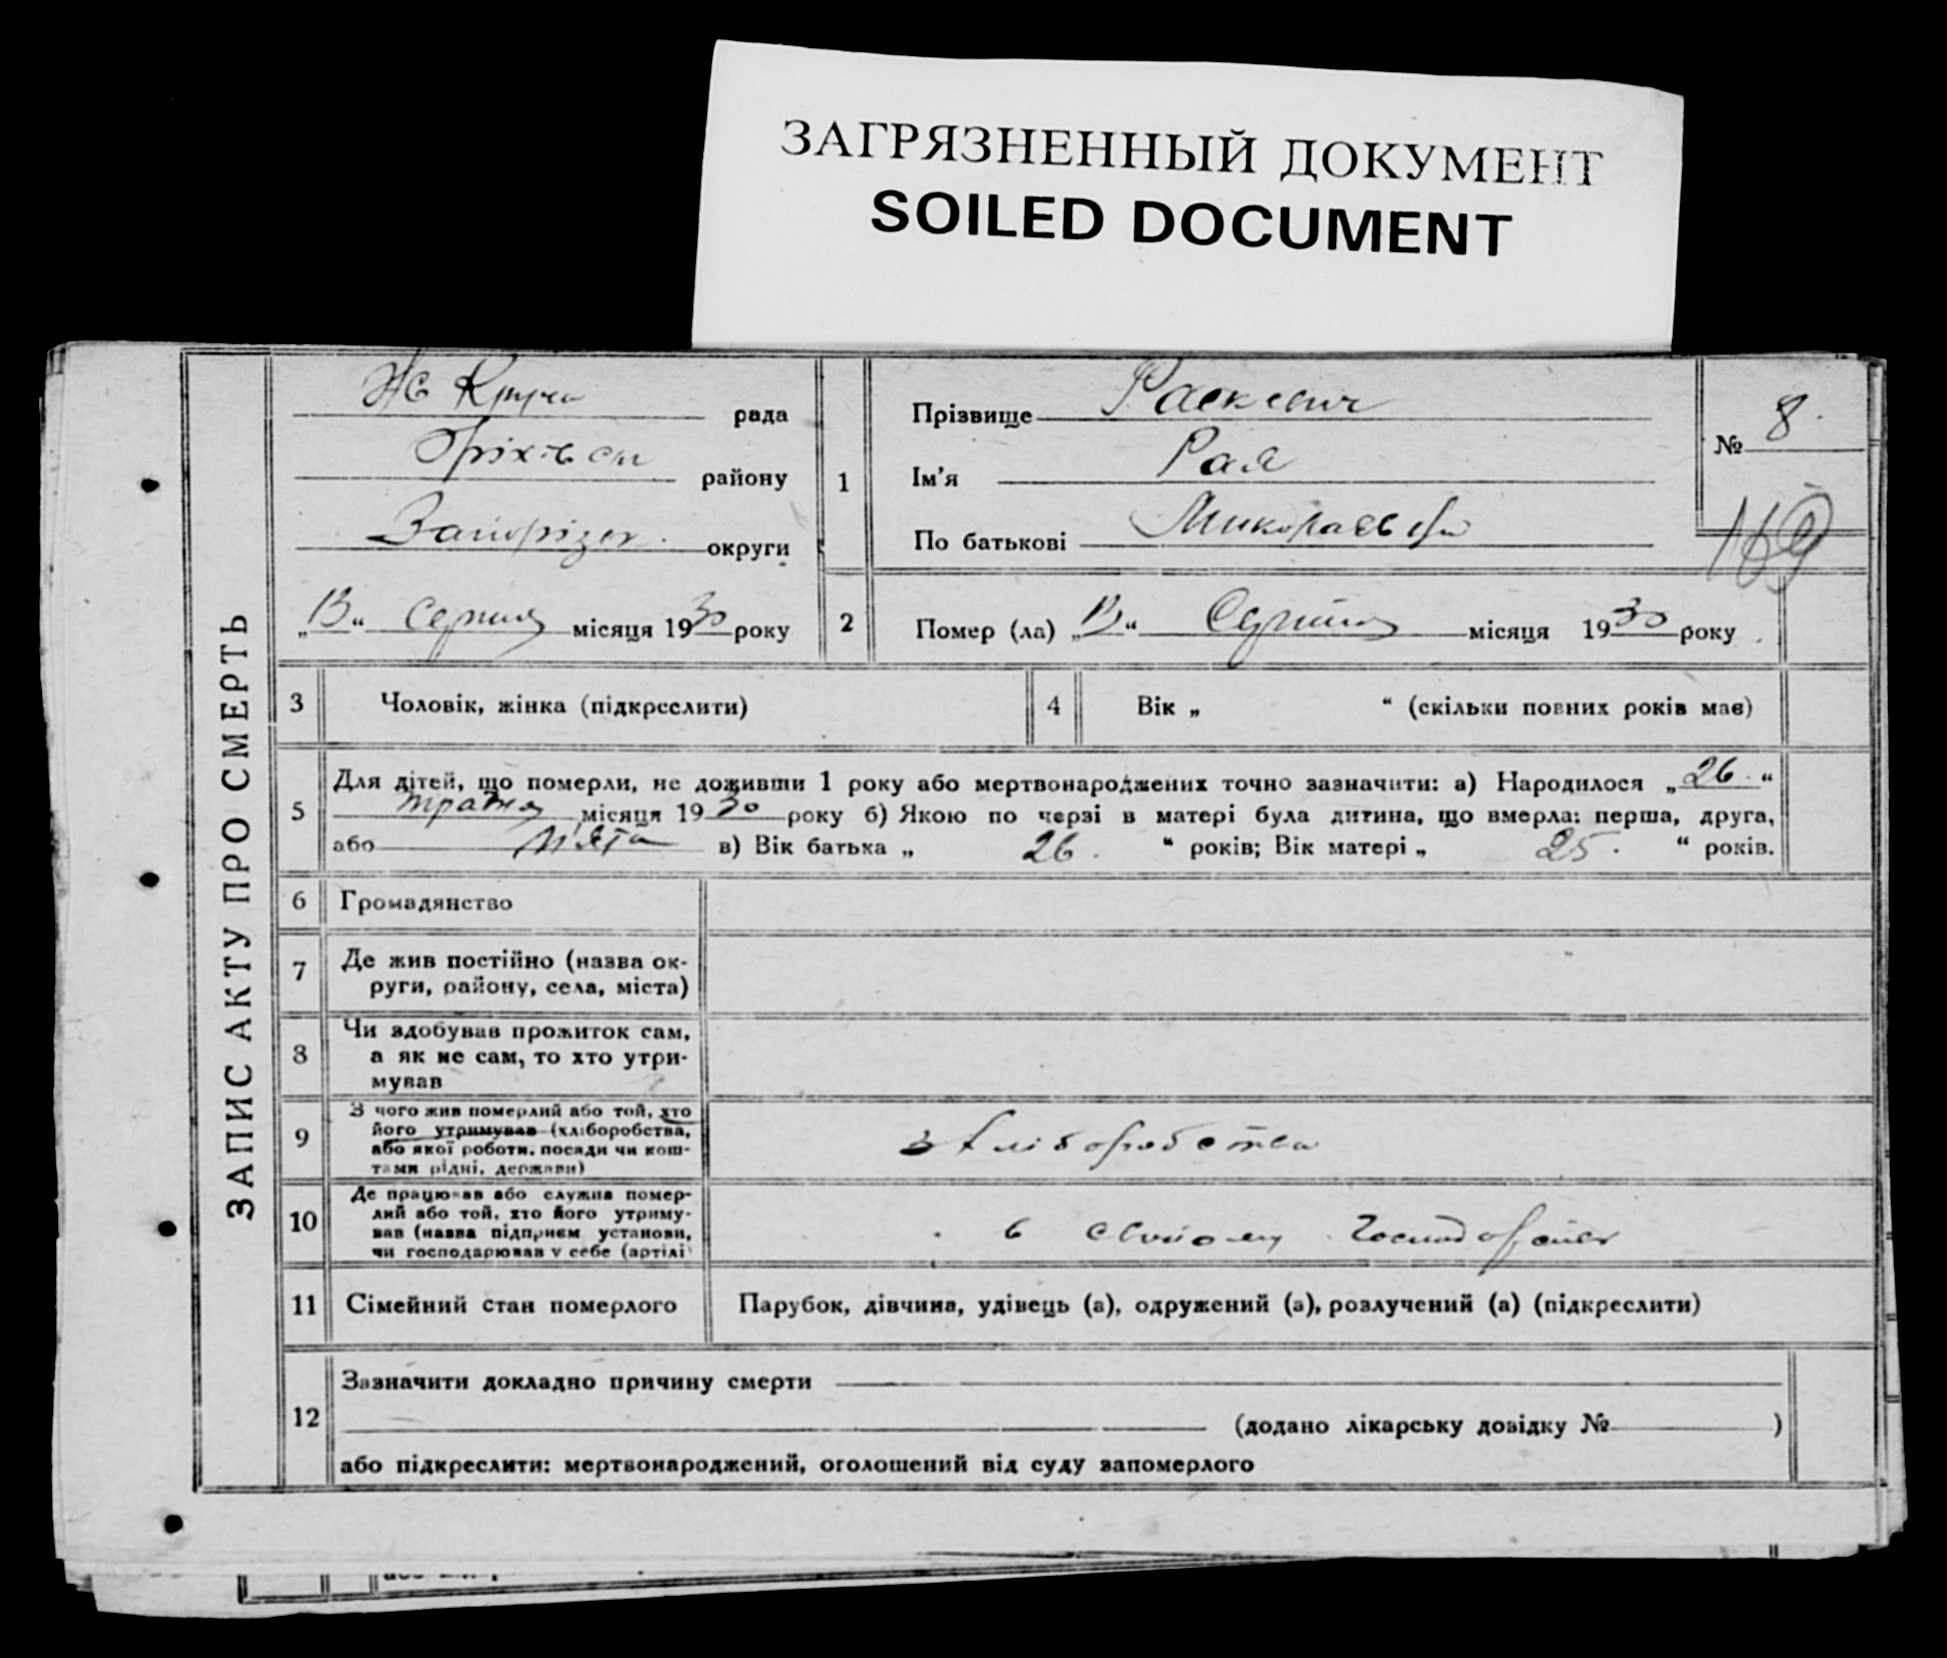 ЗАГРЯЗНЕННЫЙ ДОКУМЕНТ
SOILED DOCUMENT
ЗАПИС АКТУ ПРО СМЕРТЬ
рада
району
Запорізьк. округи
„13“ Серпня місяця 1930 року
1
Прізвище
Ім'я Рая
По батькові Миколаєв
№ 8
169
2 Помер (ла) „13“ Серпня місяця 1930 року
3 Чоловік, жінка (підкреслити)
4 Вік „ “ (скільки повних років має)
5 Для дітей, що померли, не доживши 1 року або мертвонароджених точно зазначити: а) Народилося „26“
травня місяця 1930 року б) Якою по черзі в матері була дитина, що вмерла: перша, друга,
або п'ята в) Вік батька „ 26. “ років; Вік матері „ 25. “ років.
6 Громадянство
7 Де жив постійно (назва ок-
руги, району, села, міста)
8 Чи здобував прожиток сам,
а як не сам, то хто утри-
мував
9 З чого жив померлий або той, хто
його утримував (хліборобства,
або якої роботи, посади чи кош-
тами рідні, держави)
з хліборобства
10 Де працював або служив помер-
лий або той, хто його утриму-
вав (назва підприєм установи,
чи господарював у себе (артілі)
в своїому господарстві
11 Сімейний стан померлого
Парубок, дівчина, удівець (а), одружений (а), розлучений (а) (підкреслити)
12 Зазначити докладно причину смерти
(додано лікарську довідку № )
або підкреслити: мертвонароджений, оголошений від суду запомерлого